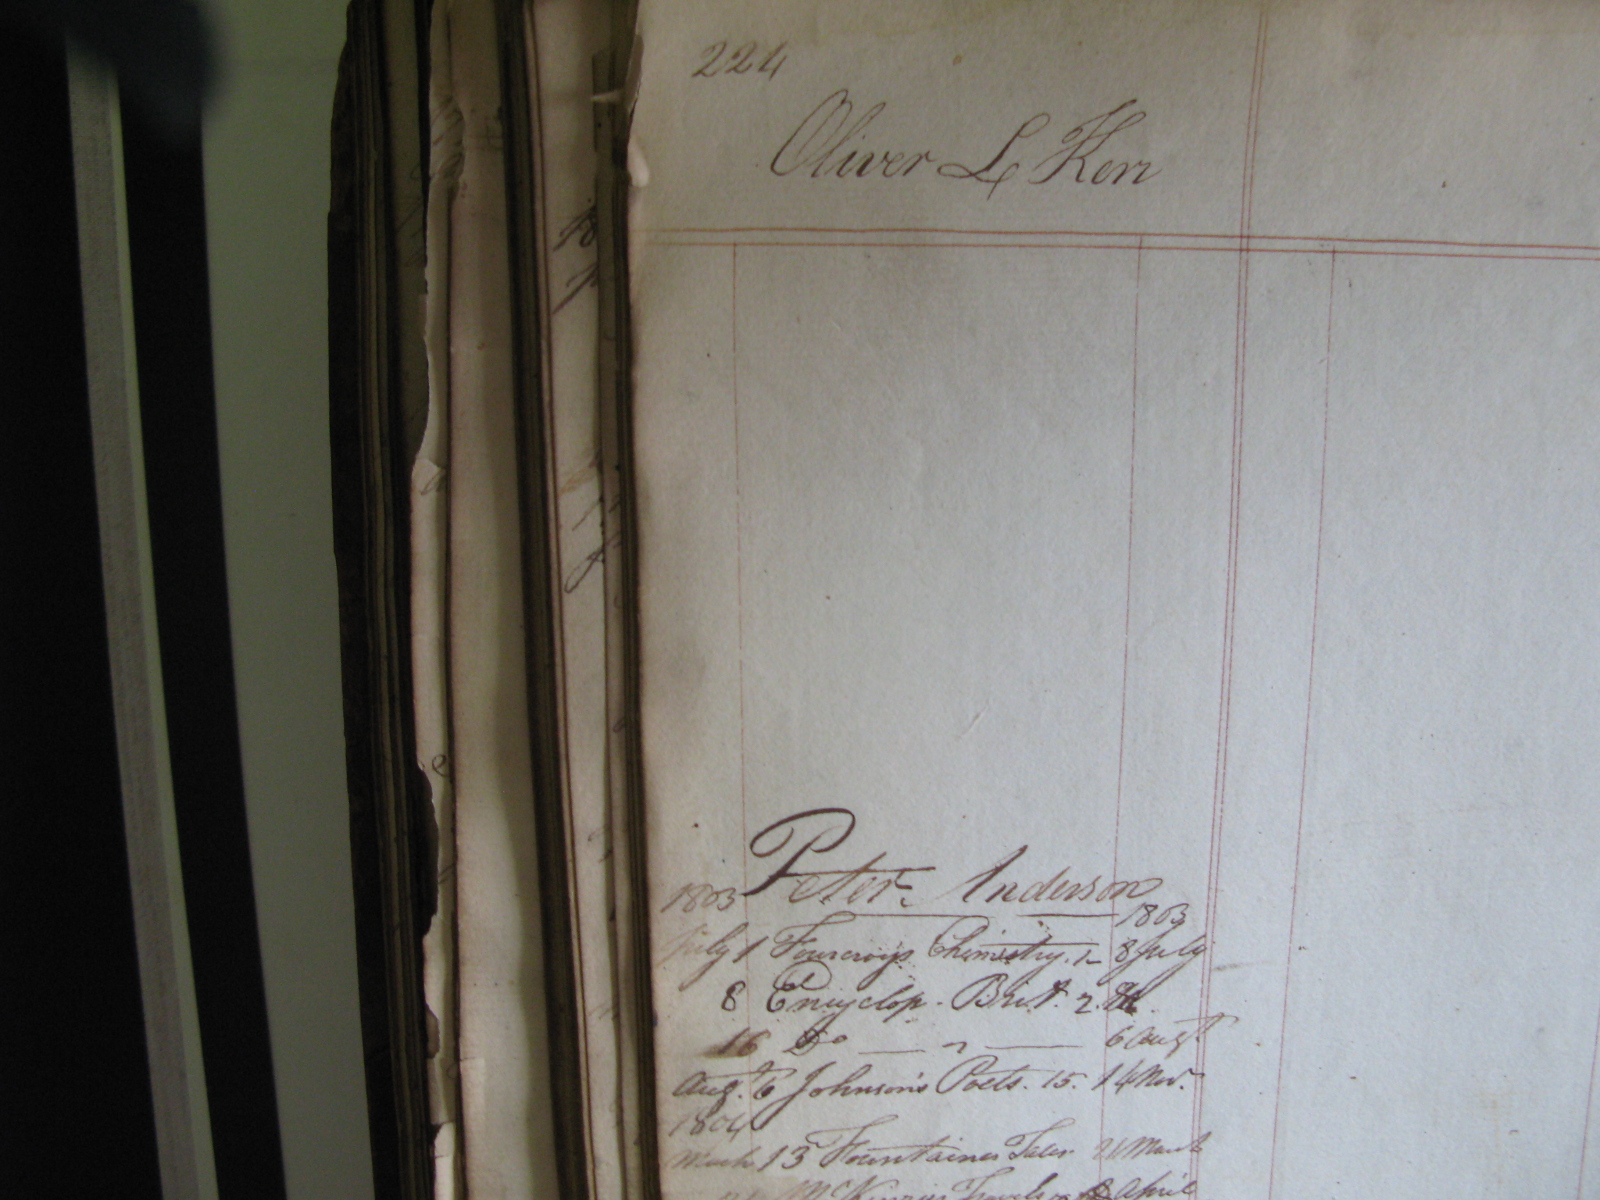 224
Oliver L Kerr
Peter Anderson
1803 1803
July 1 Fourcroy's Chimistry. 1- 8 July
8 Encyclop. Brit. 2.
16 Do 6 Augt
Aug. 6 Johnson's Poets. 15. 14 Nov.
1804
March 13 Fountaines Tales 21 March
McKenzies Travels April